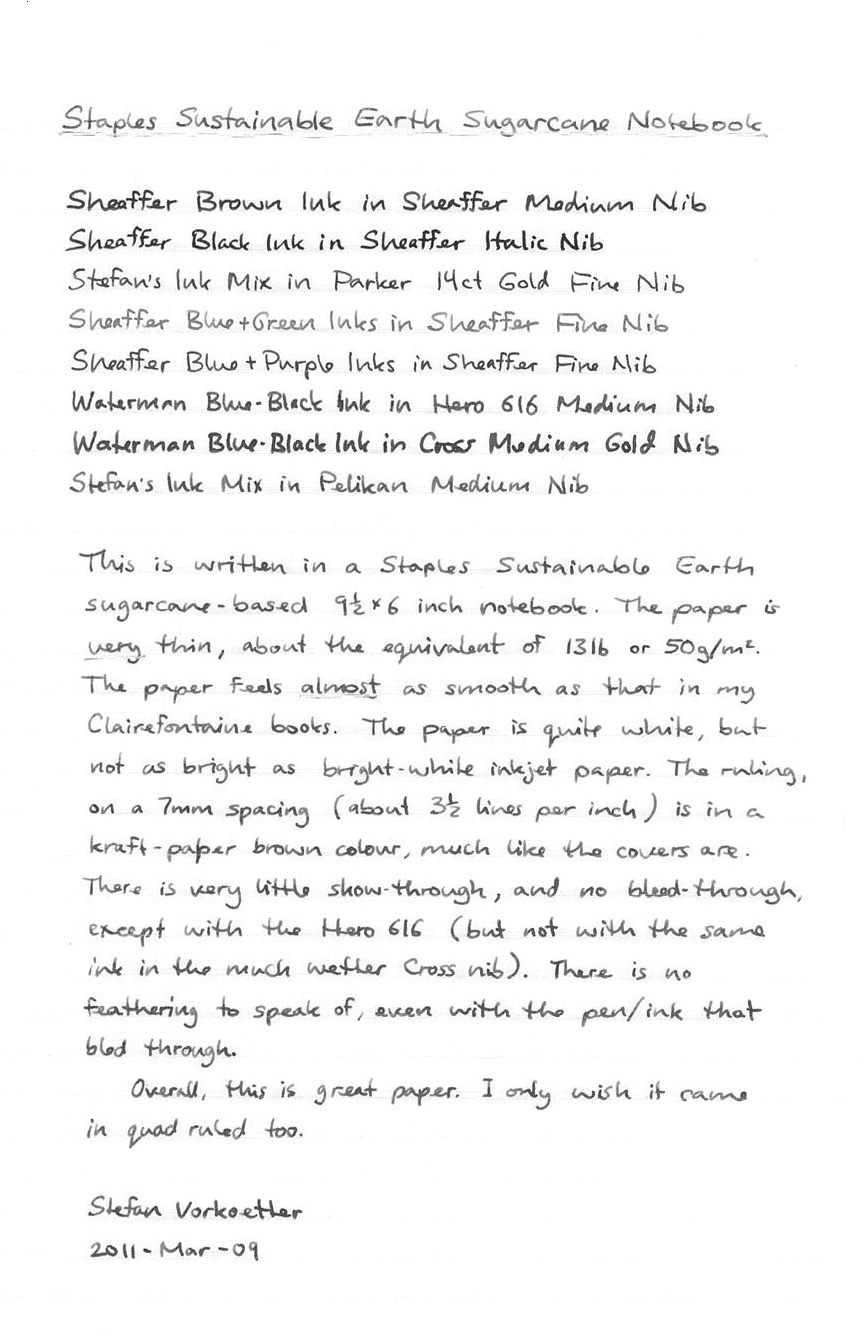 Staples Sustainable Earth Sugarcane Notebook
Sheaffer Brown Ink in Sheaffer Medium Nib
Sheaffer Black Ink in Sheaffer Italic Nib
Stefan's Ink Mix in Parker 14ct Gold Fine Nib
Sheaffer Blue+Green Inks in Sheaffer Fine Nib
Sheaffer Blue+Purple Inks in Sheaffer Fine Nib
Waterman Blue-Black Ink in Hero 616 Medium Nib
Waterman Blue-Black Ink in Cross Medium Gold Nib
Stefan's Ink Mix in Pelikan Medium Nib
This is written in a Staples Sustainable Earth
sugarcane-based 9½×6 inch notebook. The paper is
very thin, about the equivalent of 13lb or 50g/m².
The paper feels almost as smooth as that in my
Clairefontaine books. The paper is quite white, but
not as bright as bright-white inkjet paper. The ruling,
on a 7mm spacing (about 3½ lines per inch) is in a
kraft-paper brown colour, much like the covers are.
There is very little show-through, and no bleed-through,
except with the Hero 616 (but not with the same
ink in the much wetter Cross nib). There is no
feathering to speak of, even with the pen/ink that
bled through.
Overall, this is great paper. I only wish it came
in quad ruled too.
Stefan Vorkoetter
2011-Mar-09